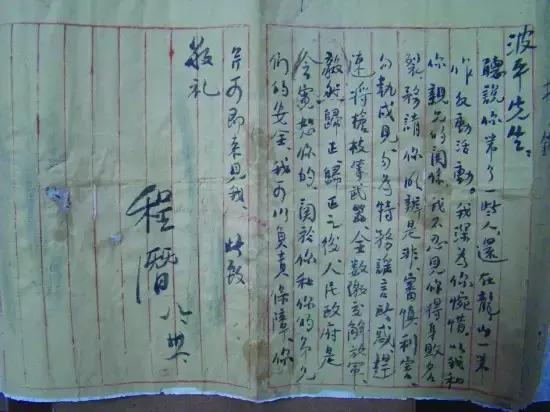 波平先生:
聽説你帶了一些人,還在龍山一帶
作反動活動。我深為你惋惜。以我和
你親兄的關係,我不忍見你得身敗名
裂,務請你明辨是非,審慎利害,
勿執成見,勿為特務謠言所惑,趕
速將槍枝等武器全數繳交解放軍,
毅然歸正。歸正之後,人民政府是
會寬恕你的。關於你和你的部兄
們的安全,我可以負責保障。你
并可即來見我。此致
敬禮
程潛